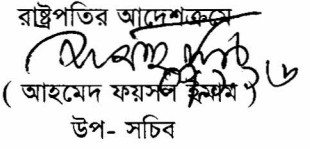 রাষ্ট্রপতির আদেশক্রমে
( আহমেদ ফয়সল ইমাম )
উপ- সচিব